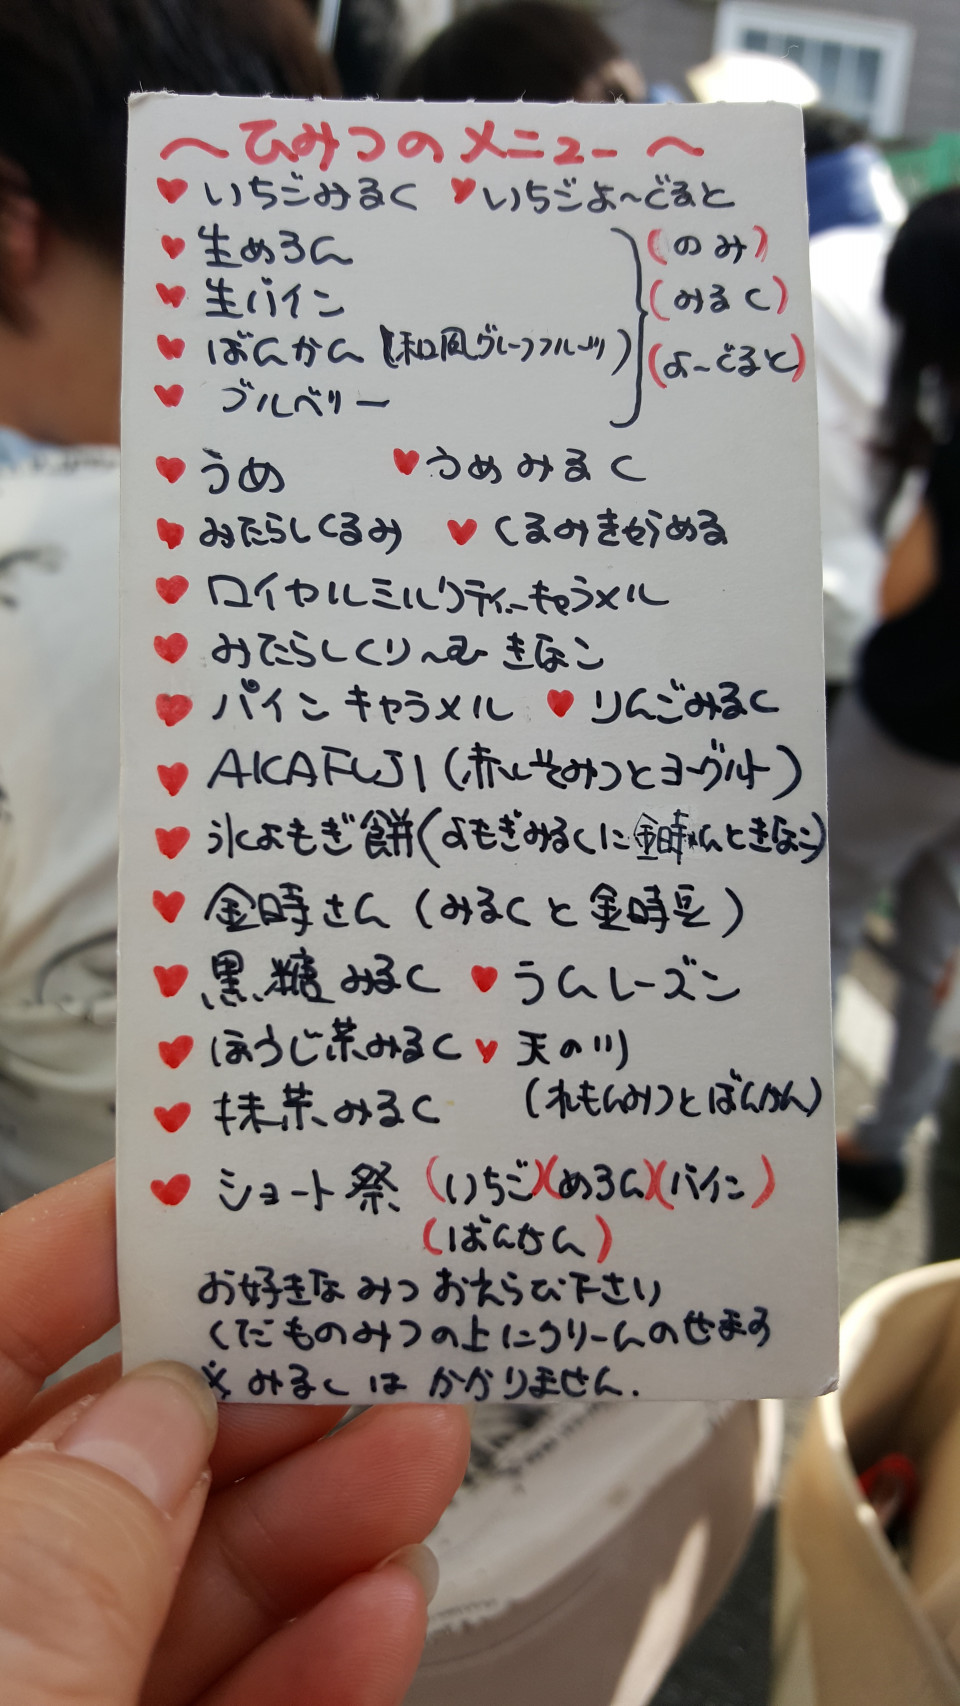 〜ひみつのメニュー〜
♥いちごみるく ♥いちごよ〜ぐると
♥生めろん (のみ)
♥生パイン (みるく)
♥ばんかん(和風グレープフルーツ) (よ〜ぐると)
♥ブルベリー
♥うめ ♥うめみるく
♥みたらしくるみ ♥くるみきゃらめる
♥ロイヤルミルクティーキャラメル
♥みたらしくり〜む きなこ
♥パインキャラメル ♥りんごみるく
♥AKAFUJI(赤しそみつとヨーグルト)
♥氷よもぎ餅(よもぎみるくに金時さんときなこ)
♥金時さん(みるくと金時豆)
♥黒糖みるく ♥ラムレーズン
♥ほうじ茶みるく ♥天の川
(れもんみつとばんかん)
♥抹茶みるく
♥ショート祭 (いちご)(めろん)(パイン)
(ばんかん)
お好きなみつおえらび下さい
くだものみつの上にクリームのせます
※みるくはかかりません.